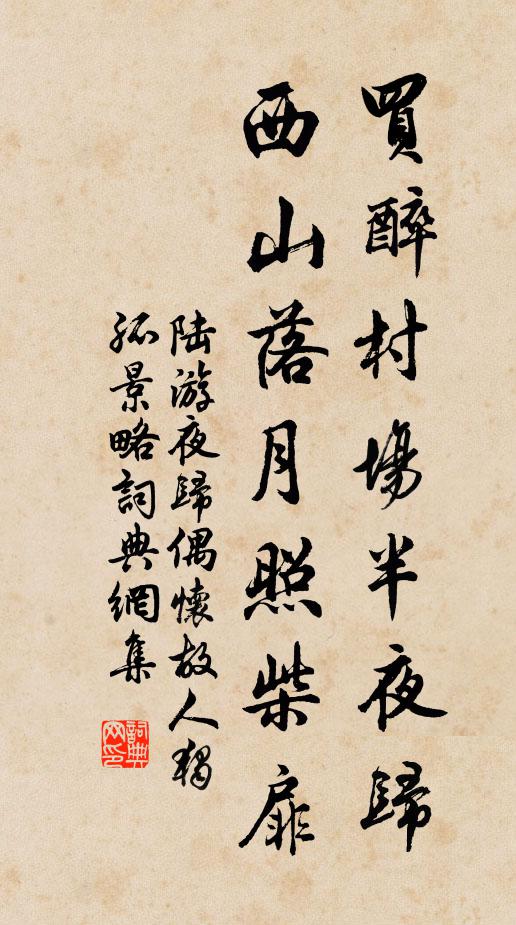 買醉村場半夜歸
西山落月照柴扉
陸游夜歸偶懷故人獨
孤景略詞典網集
詞典網印